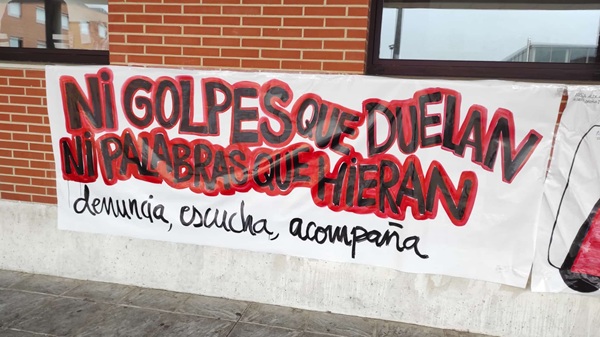 NI GOLPES QUE DUELAN
NI PALABRAS QUE HIERAN
denuncia, escucha, acompaña